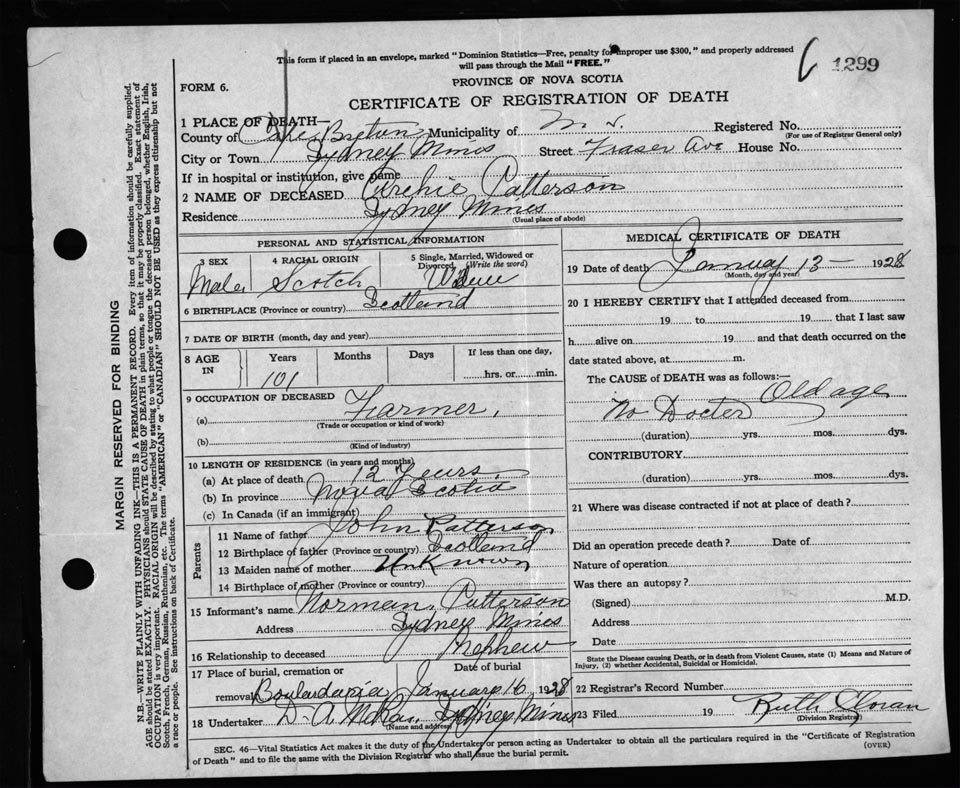 This form if placed in an envelope, marked "Dominion Statistics—Free, penalty for improper use $300," and properly addressed
will pass through the Mail "FREE."
1299
FORM 6.
PROVINCE OF NOVA SCOTIA
CERTIFICATE OF REGISTRATION OF DEATH
1 PLACE OF DEATH—
County of Cape Breton Municipality of N. S. Registered No.
(For use of Registrar General only)
City or Town Sydney Mines Street Fraser Ave House No.
If in hospital or institution, give name
2 NAME OF DECEASED Archie Patterson
Residence Sydney Mines
(Usual place of abode)
PERSONAL AND STATISTICAL INFORMATION
3 SEX 4 RACIAL ORIGIN 5 Single, Married, Widowed or Divorced (Write the word)
Male Scotch
6 BIRTHPLACE (Province or country) Scotland
7 DATE OF BIRTH (month, day and year)
8 AGE IN Years Months Days If less than one day,
101 hrs. or min.
9 OCCUPATION OF DECEASED
(a) Farmer
(Trade or occupation or kind of work)
(b)
(Kind of industry)
10 LENGTH OF RESIDENCE (in years and months)
(a) At place of death 12 Years
(b) In province Nova Scotia
(c) In Canada (if an immigrant)
Parents
11 Name of father John Patterson
12 Birthplace of father (Province or country) Scotland
13 Maiden name of mother Unknown
14 Birthplace of mother (Province or country)
15 Informant's name Norman Patterson
Address Sydney Mines
16 Relationship to deceased Nephew
17 Place of burial, cremation or Date of burial
removal Boulardarie January 16, 1928
18 Undertaker D. A. McRae Sydney Mines
(Name and address)
MEDICAL CERTIFICATE OF DEATH
19 Date of death January 13 — 1928
(Month, day and year)
20 I HEREBY CERTIFY that I attended deceased from
19 to 19 that I last saw
h alive on 19 and that death occurred on the
date stated above, at m.
The CAUSE of DEATH was as follows:—
Old age
No Docter
(duration) yrs. mos. dys.
CONTRIBUTORY
(duration) yrs. mos. dys.
21 Where was disease contracted if not at place of death?
Did an operation precede death? Date of
Nature of operation
Was there an autopsy?
(Signed) M.D.
Address
Date
State the Disease causing Death, or in death from Violent Causes, state (1) Means and Nature of
Injury, (2) whether Accidental, Suicidal or Homicidal.
22 Registrar's Record Number
23 Filed 19 Ruth
(Division Registrar)
SEC. 46—Vital Statistics Act makes it the duty of the Undertaker or person acting as Undertaker to obtain all the particulars required in the "Certificate of Registration
of Death" and to file the same with the Division Registrar who shall issue the burial permit.
(OVER)
MARGIN RESERVED FOR BINDING
N.B.—WRITE PLAINLY WITH UNFADING INK—THIS IS A PERMANENT RECORD. Every item of information should be carefully supplied.
AGE should be stated EXACTLY. PHYSICIANS should STATE CAUSE OF DEATH in plain terms, so that it may be properly classified. Exact statement of
OCCUPATION is very important. RACIAL ORIGIN will be described by stating to what people or tongue the deceased person belonged, whether English, Irish,
Scotch, French, German, Russian, Ruthenian, etc. The terms "AMERICAN" or "CANADIAN" SHOULD NOT BE USED as they express citizenship but not
a race or people. See instructions on back of Certificate.